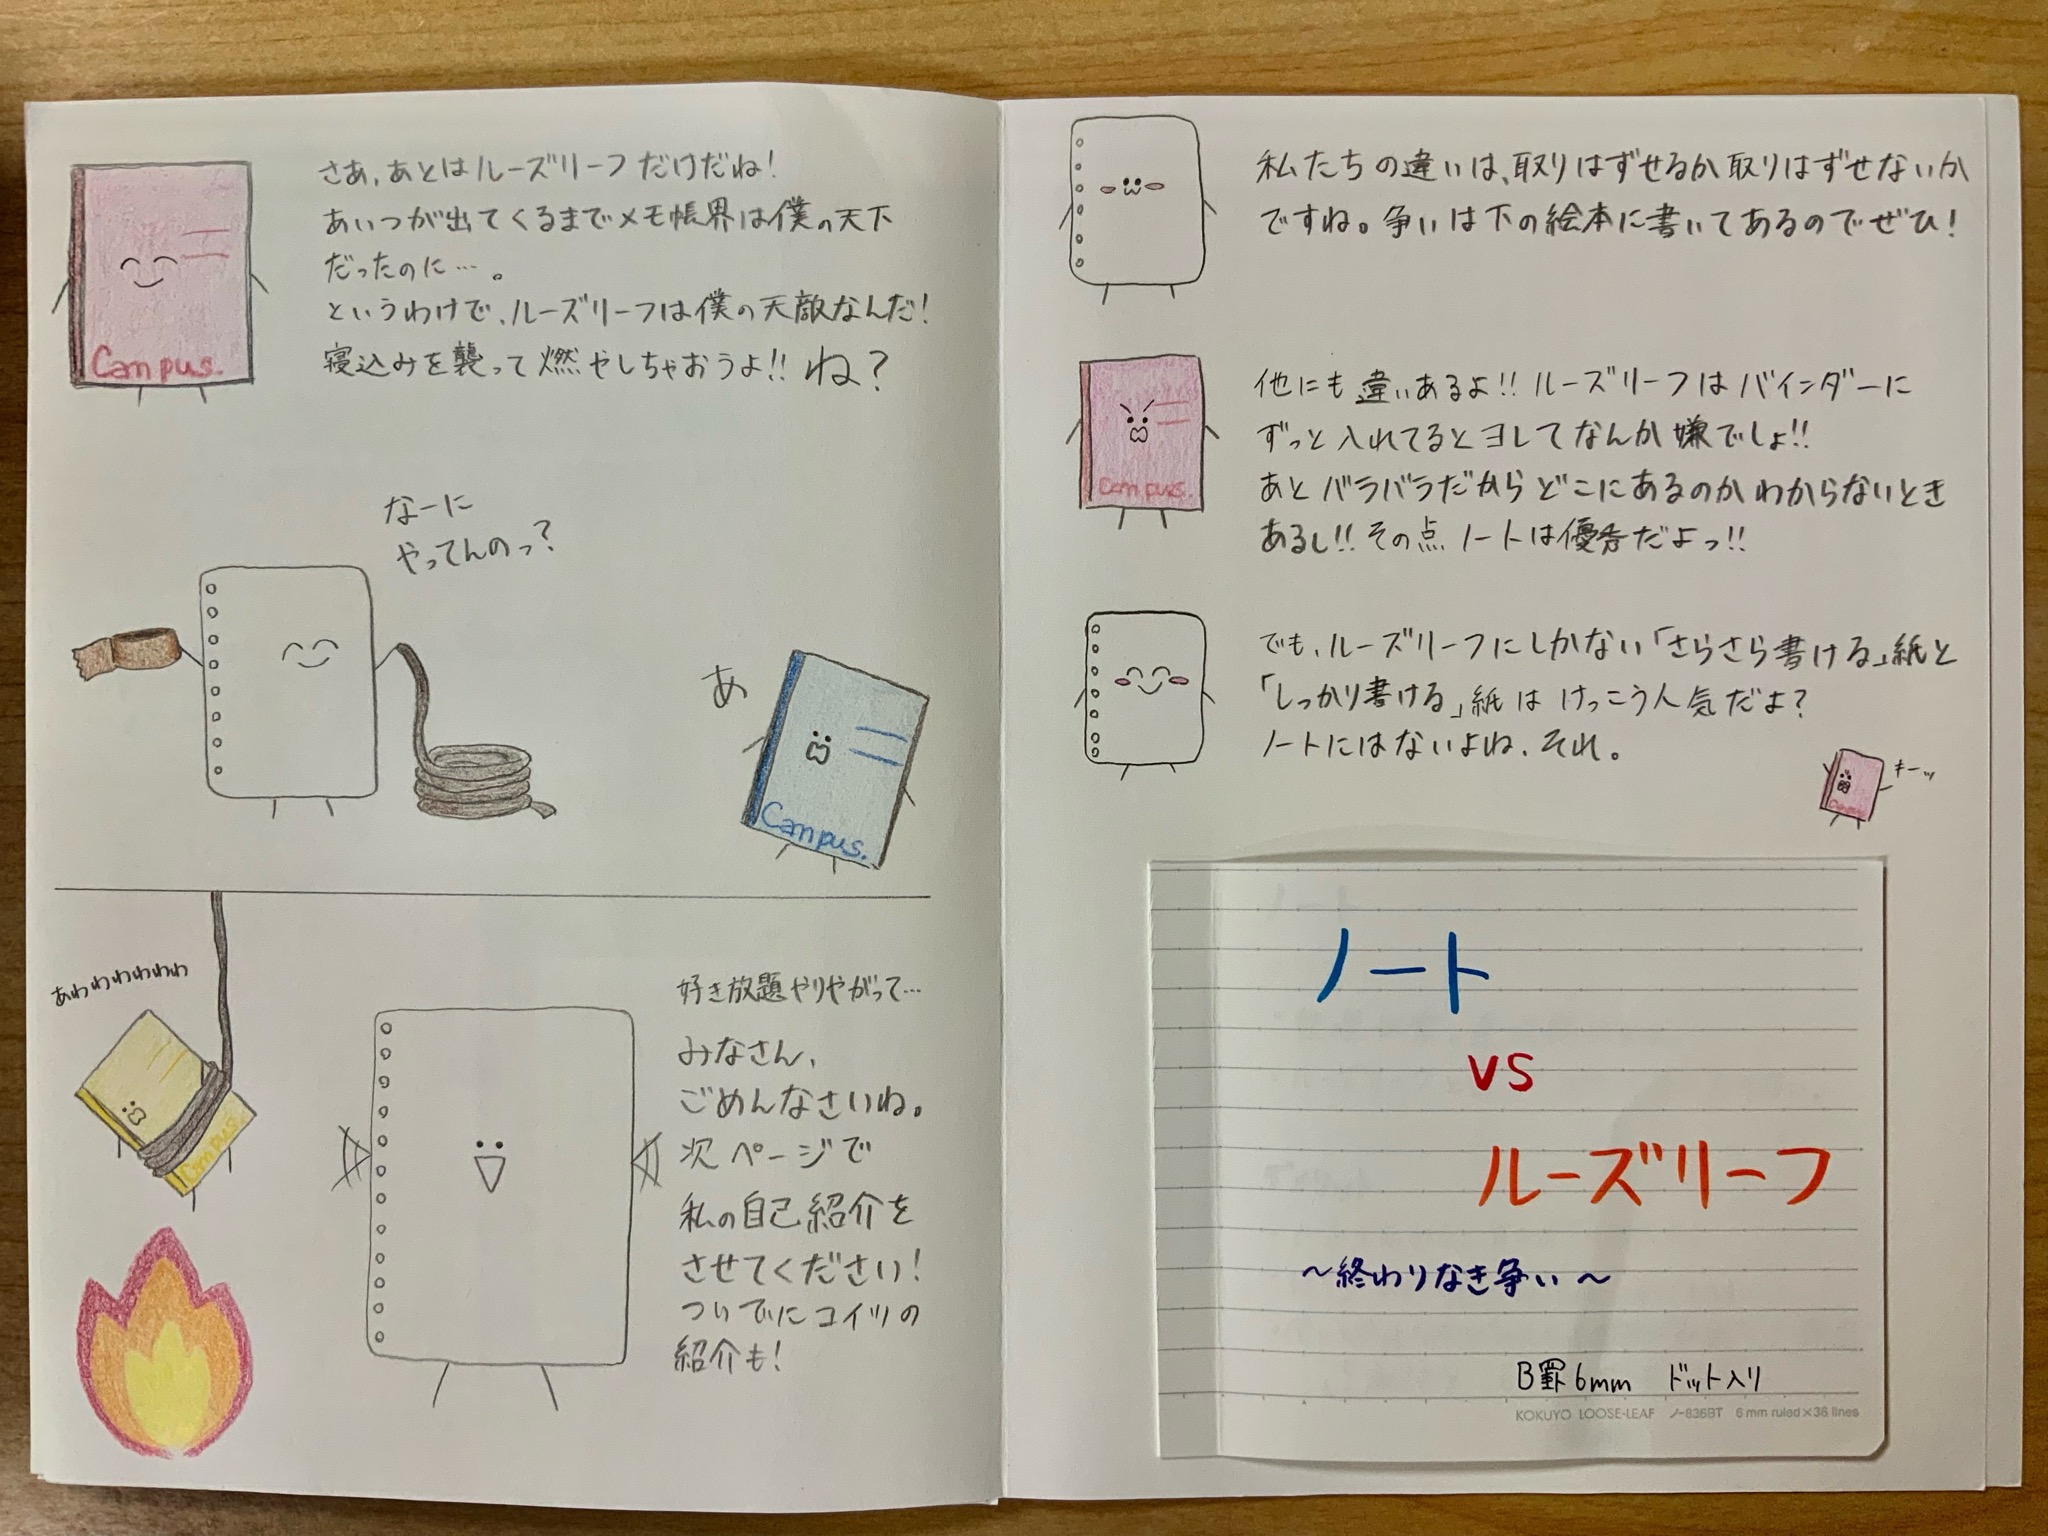 さあ、あとはルーズリーフだけだね!
あいつが出てくるまでメモ帳界は僕の天下
だったのに…。
というわけで、ルーズリーフは僕の天敵なんだ!
寝込みを襲って燃やしちゃおうよ!! ね?
Campus.
なーに
やってんのっ?
あ
Campus.
あわわわわわわ
Campus
好き放題やりやがって…
みなさん、
ごめんなさいね。
次ページで
私の自己紹介を
させてください!
ついでにコイツの
紹介も!
私たちの違いは、取りはずせるか取りはずせないか
ですね。争いは下の絵本に書いてあるのでぜひ!
他にも違いあるよ!! ルーズリーフはバインダーに
ずっと入れてるとヨレてなんか嫌でしょ!!
あとバラバラだからどこにあるのかわからないとき
あるし!! その点ノートは優秀だよっ!!
Campus.
でも、ルーズリーフにしかない「さらさら書ける」紙と
「しっかり書ける」紙はけっこう人気だよ?
ノートにはないよね、それ。
キーッ
Campus
ノート
vs
ルーズリーフ
~終わりなき争い~
B罫6mm ドット入り
KOKUYO LOOSE-LEAF ノ-836BT 6mm ruled×36 lines